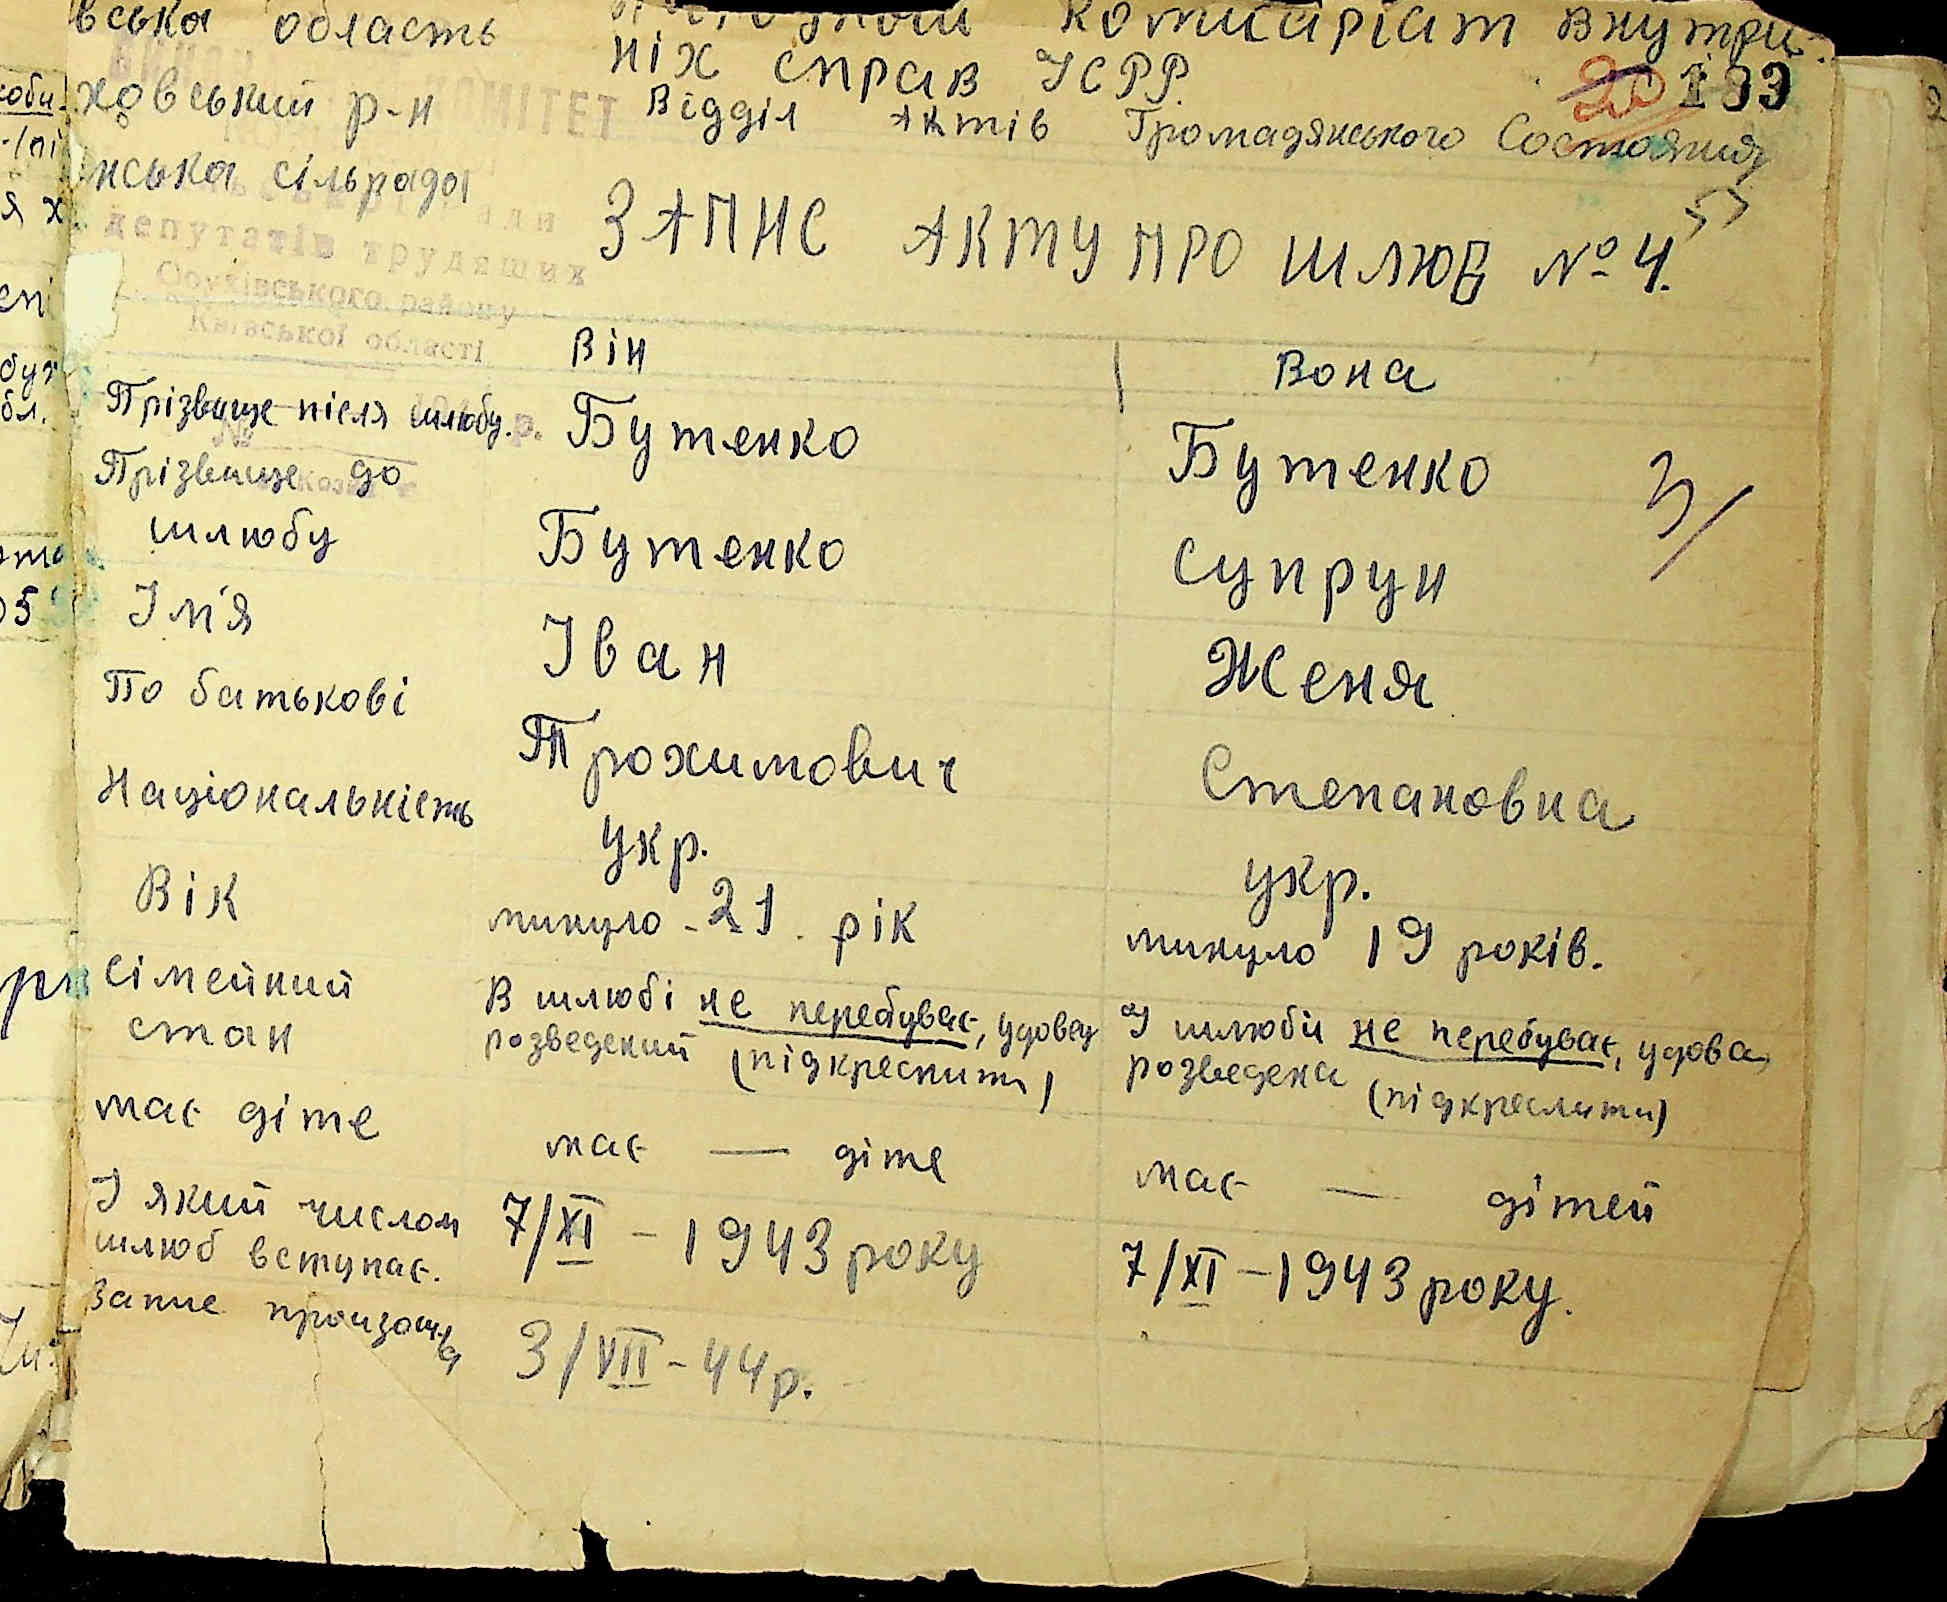 вська область
комісаріат внутри-
ніх справ УСРР.
20 133
ховський р-н
МІТЕТ
Відділ Актів Громадянського Состояния
нська сільрада
депутатів трудящих
Обухівського району
Київської області
ЗАПИС АКТУ ПРО ШЛЮБ № 4.
57
Він
Вона
Прізвище після шлюбу
Бутенко
Бутенко
З/
Прізвище до
шлюбу
Бутенко
Супрун
Ім'я
Іван
Женя
По батькові
Трохимович
Степановна
Національність
укр.
укр.
Вік
минуло - 21. рік
минуло 19 років.
Сімейний
стан
В шлюбі не перебуває, удовец
розведений (підкреслити)
У шлюби не перебуває, удова,
розведена (підкреслити)
має діте
має — діте
має — дітей
І який числом
шлюб вступає.
7/XI - 1943 року
7/XI - 1943 року.
Запис
3/VII - 44 р.